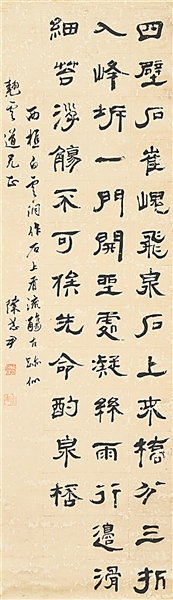 四壁石崔嵬飛泉石上來橋分三折
入峰坼一門開坐處凝絲雨行邊滑
細苔浮觴不可俟先命酌泉桮
西樵白雲洞作石上有流觴古蹟似
雲道兄正
陳恭尹